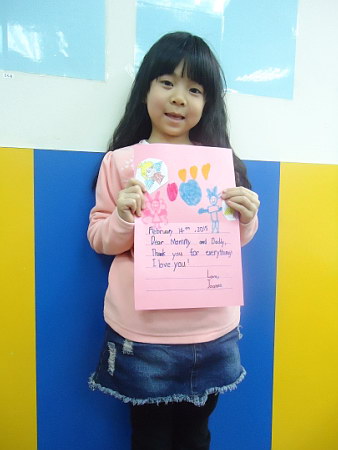 February 14th, 2015
Dear Mommy and Daddy,
Thank you for everything!
I love you!
Love,